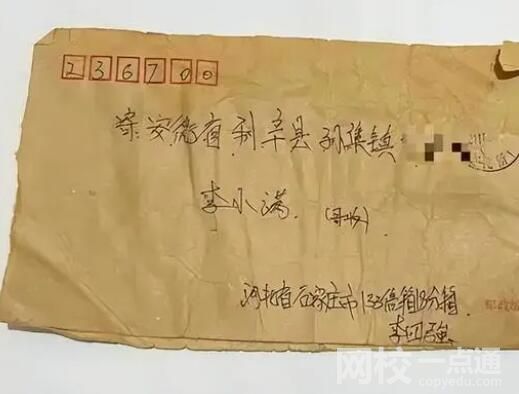 236700
寄 安徽省利辛县孙集镇
李小满 (哥收)
河北省石家庄市133信箱18分箱
李四强
网校一点通
copyedu.com